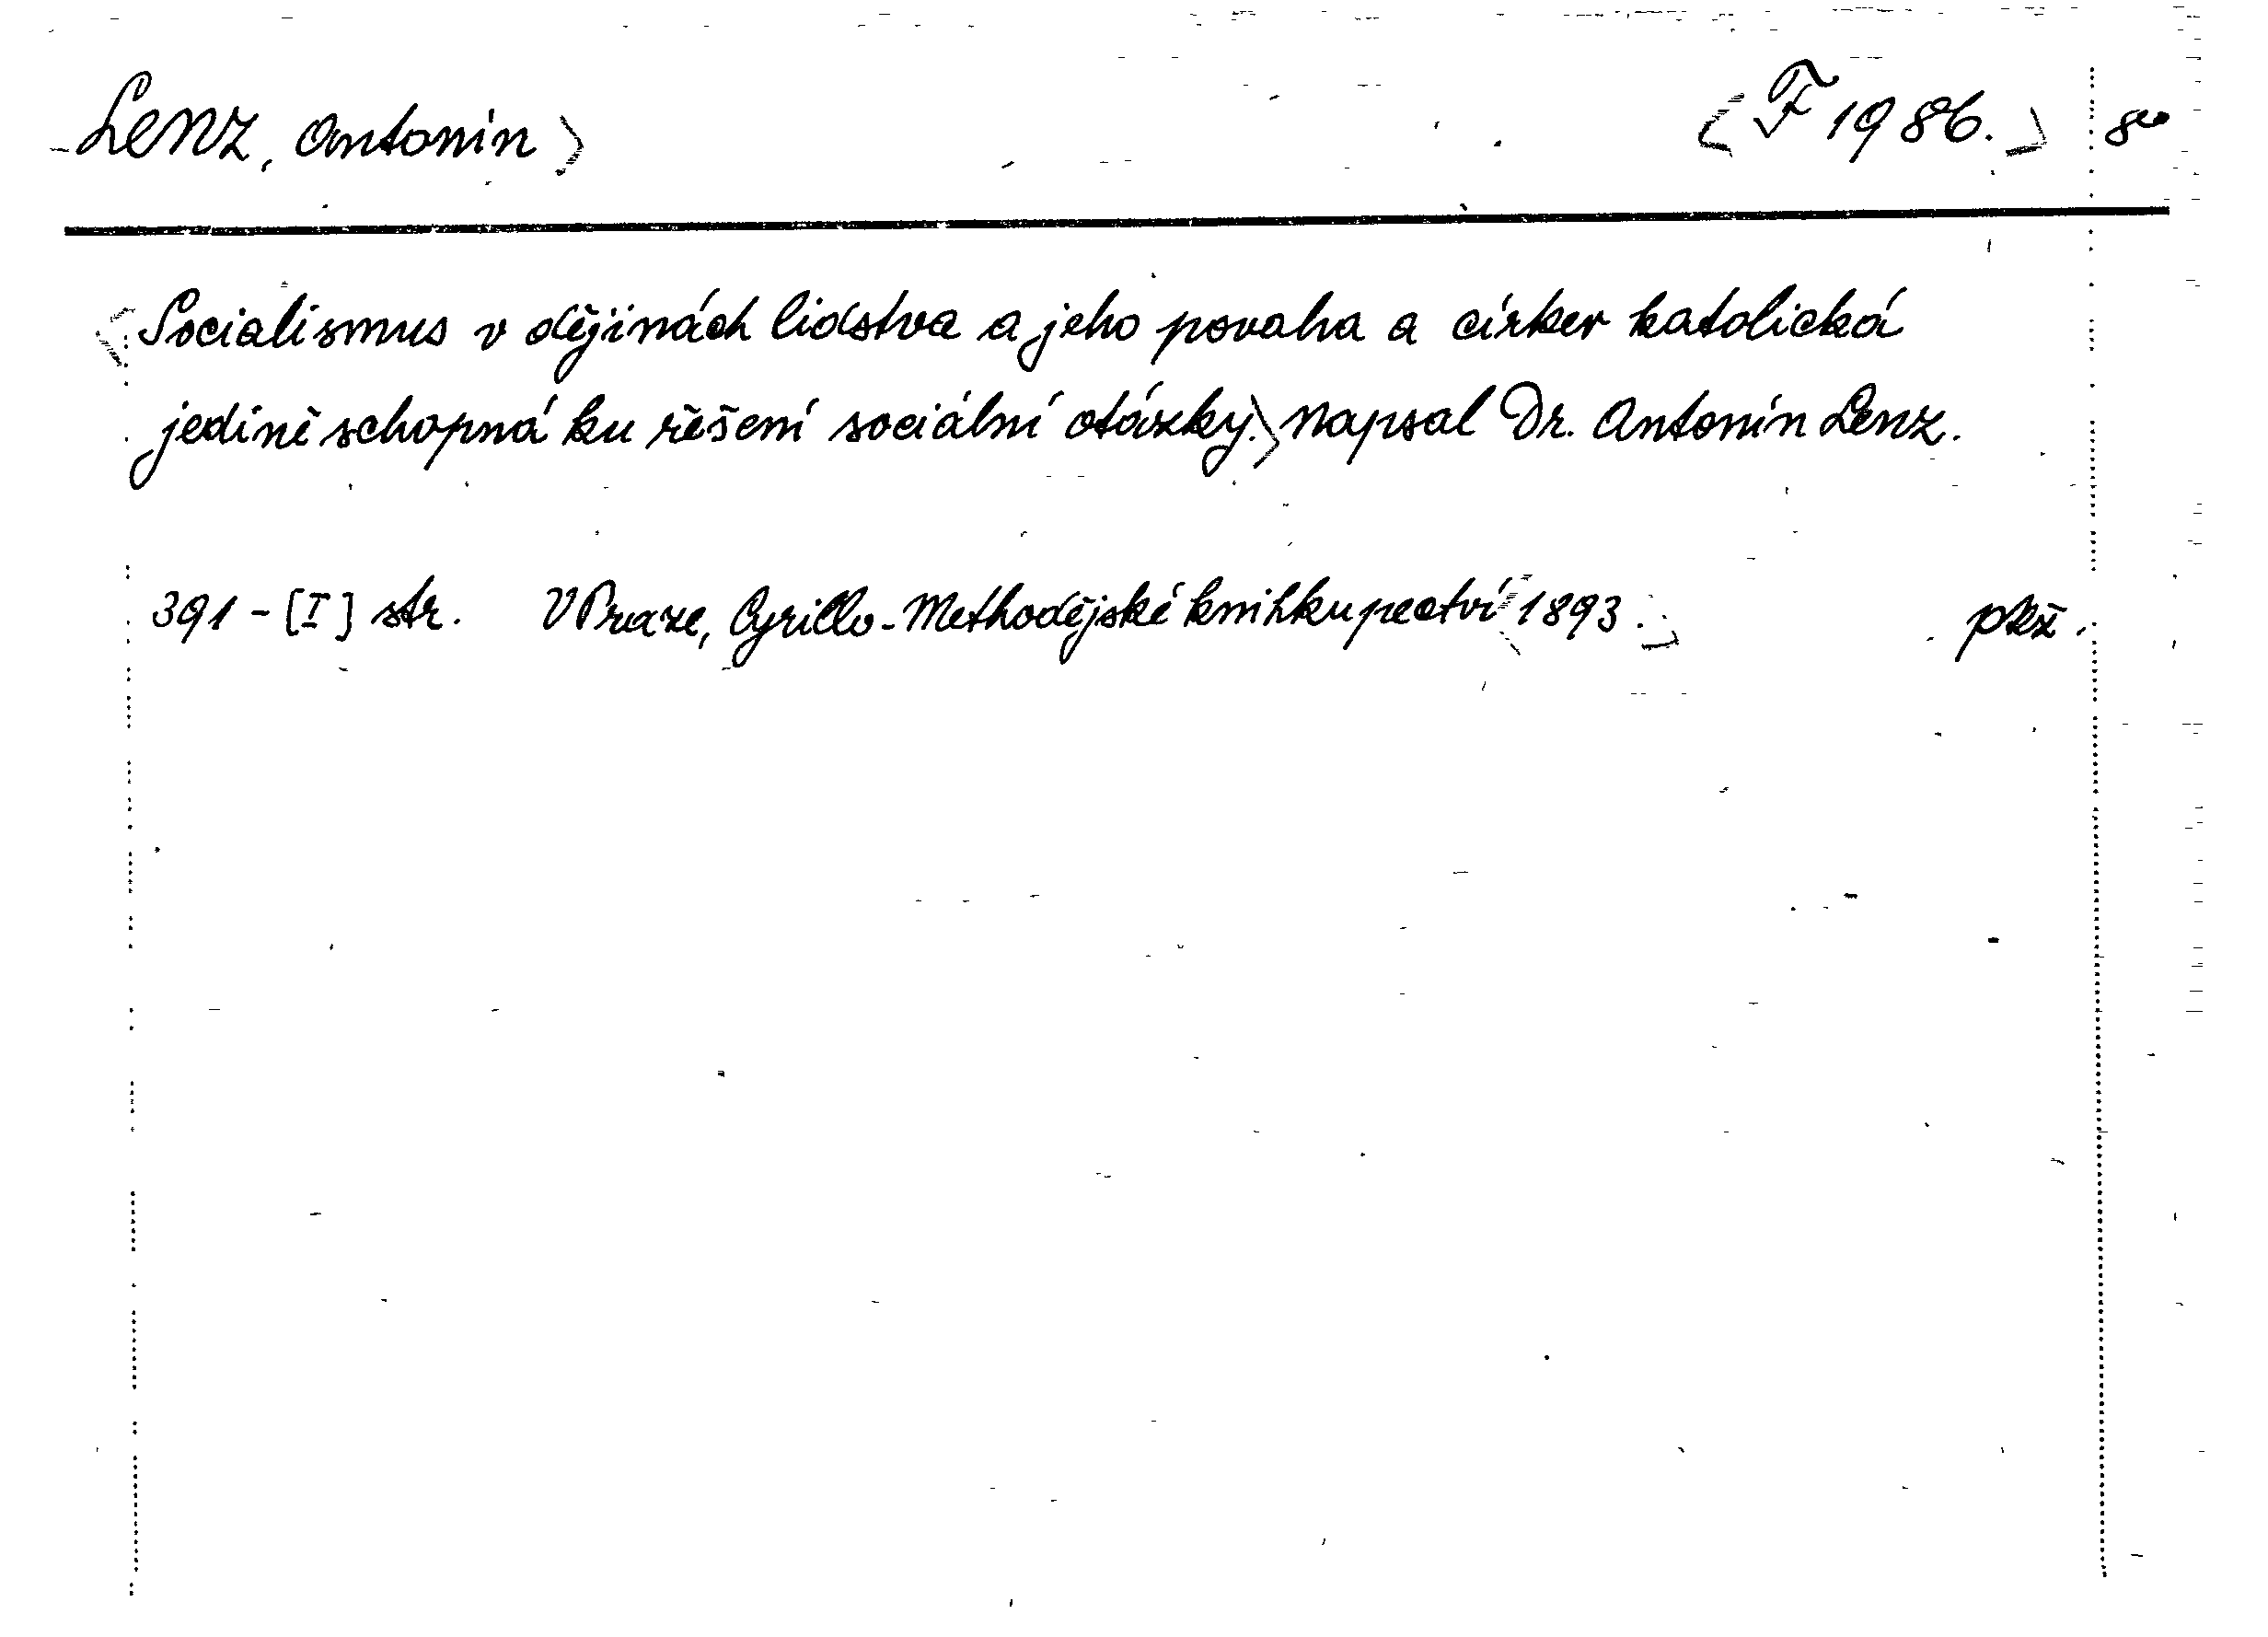 Lenz, Antonín> <F 1986.> 8°
<Socialismus v dějinách lidstva a jeho povaha a církev katolická
jedině schopná ku řešení sociální otázky.> Napsal Dr. Antonín Lenz.
391 - [I] str. V Praze, Cyrillo-Methodějské knihkupectví <1893.> pkž.